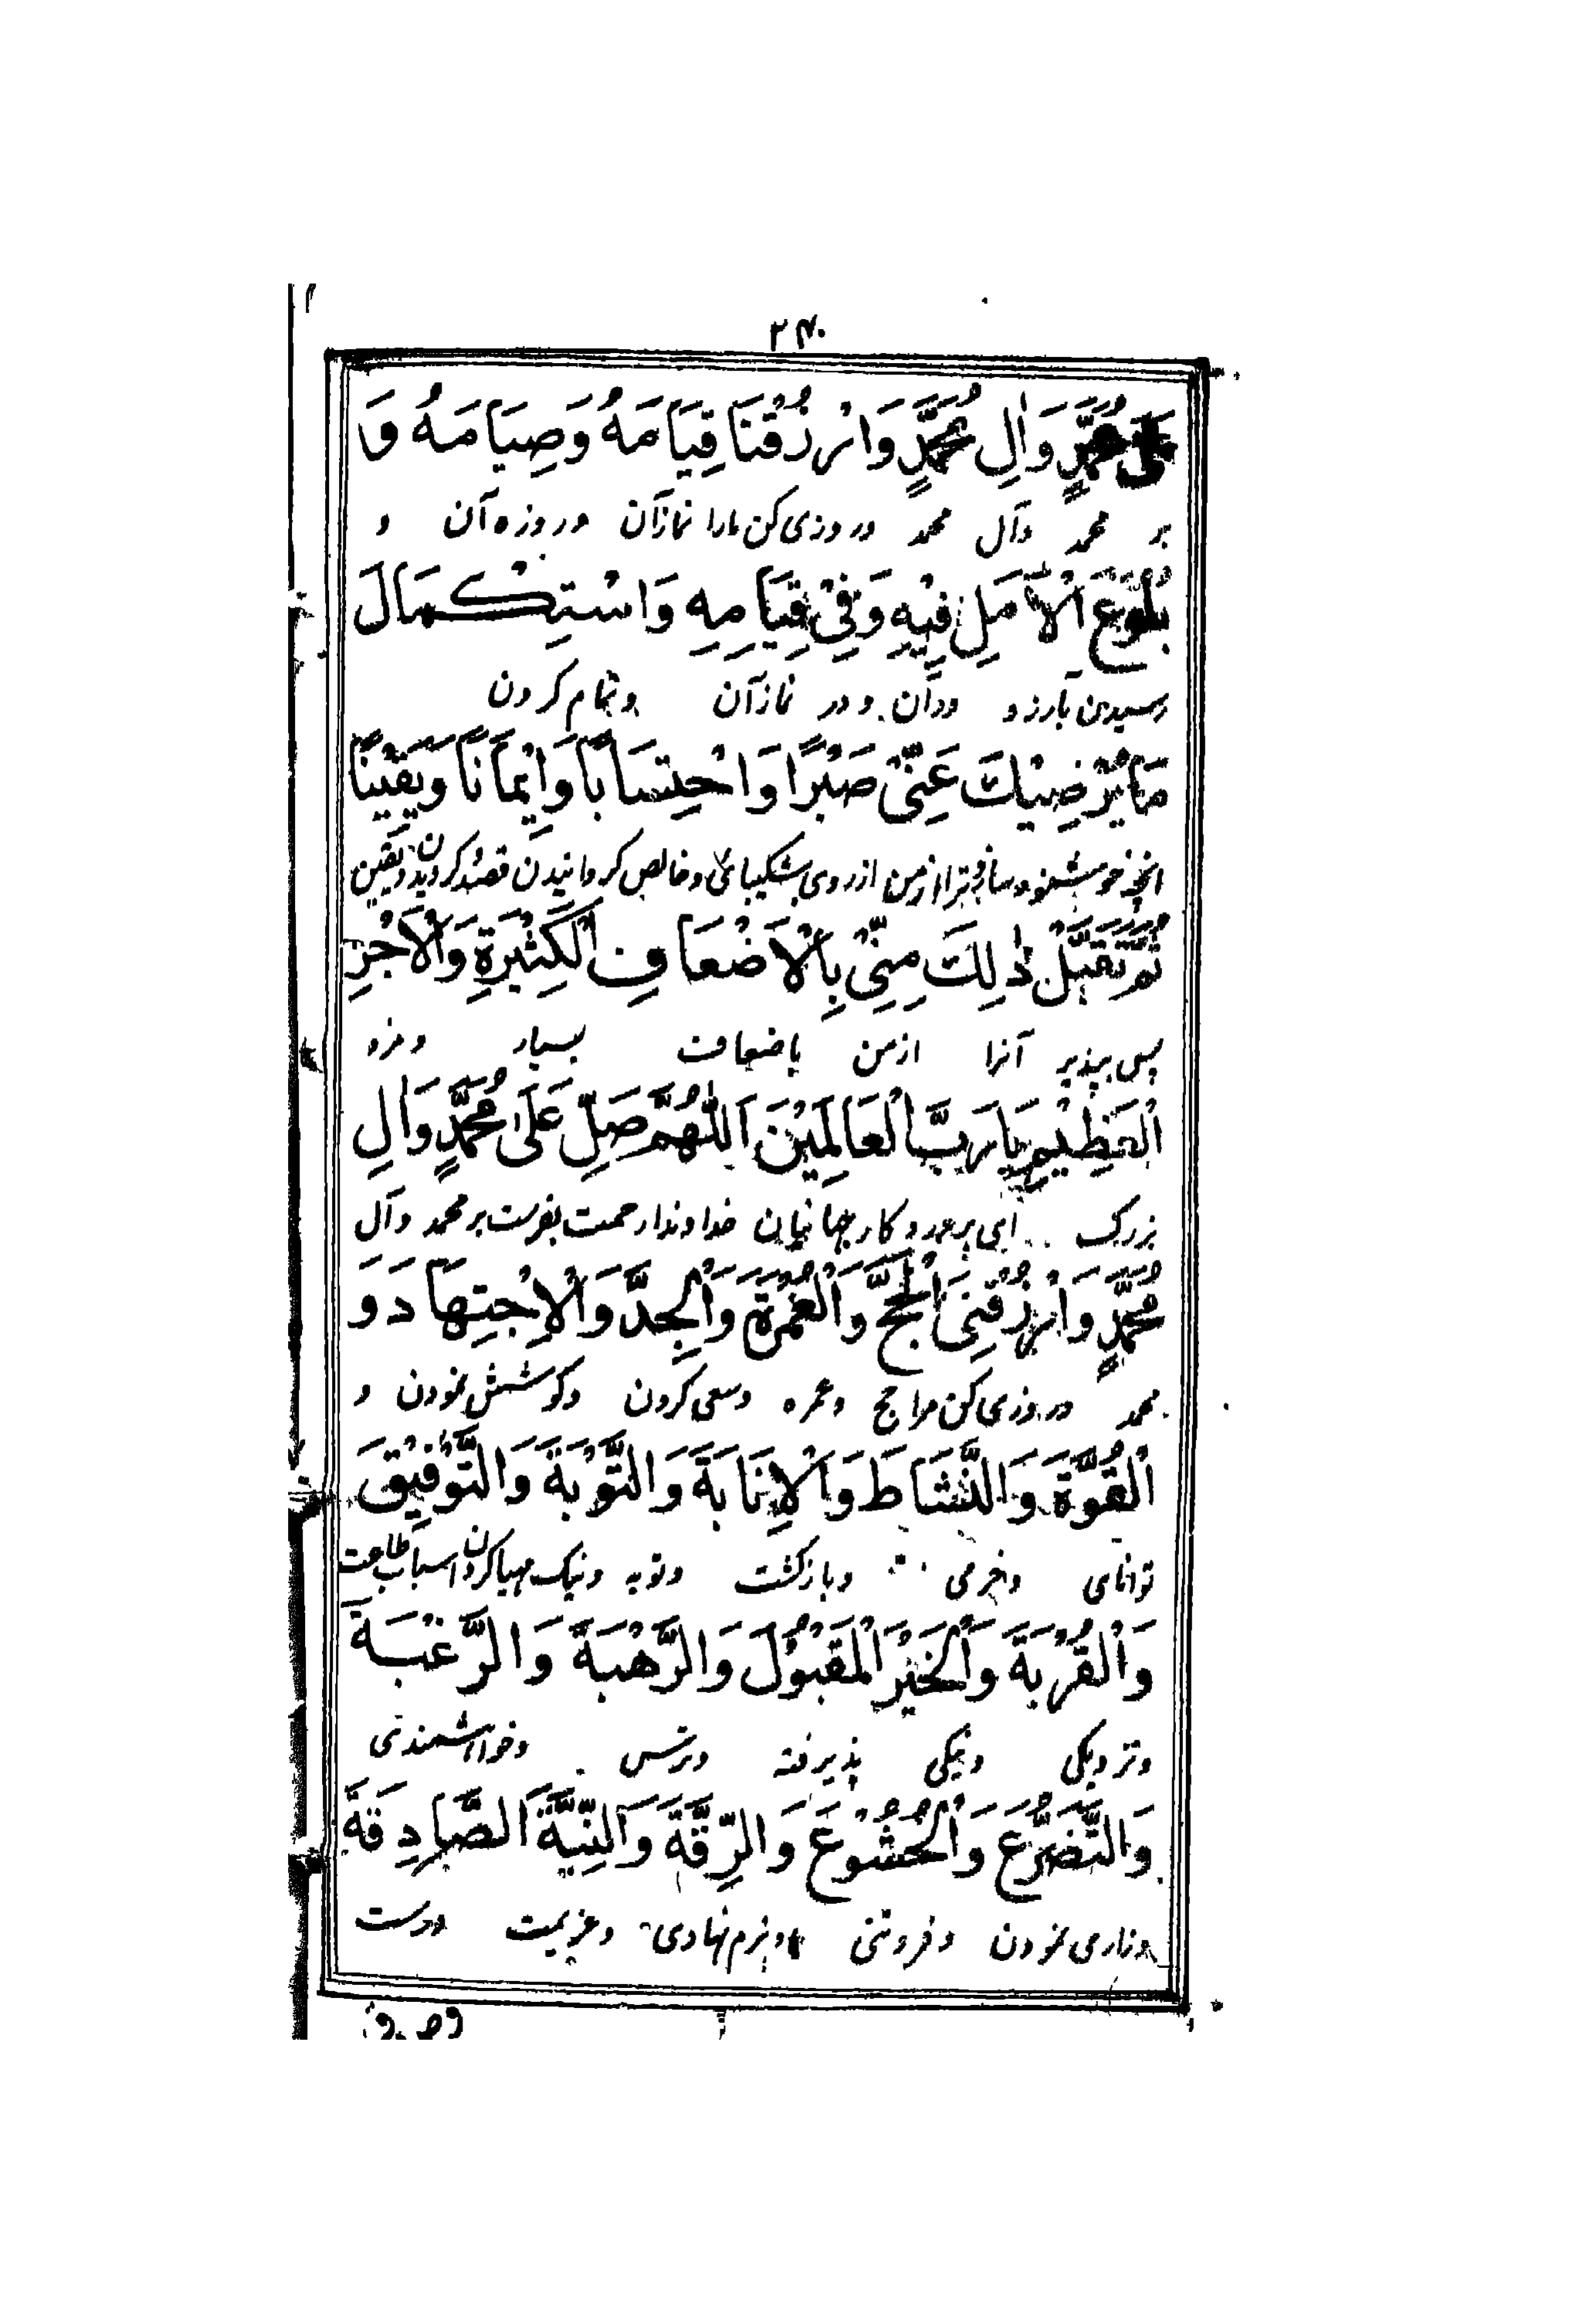 ۲۴۰
عَلٰى مُحَمَّدٍ وَاٰلِ مُحَمَّدٍ وَارْزُقْنَا قِيَامَهُ وَصِيَامَهُ وَ
بر محمد وآل محمد و روزی کن مارا نماز آن و روزه آن و
بُلُوْغَ الْاَمَلِ فِيْهِ وَفِيْ قِيَامِهِ وَاسْتِكْمَالَ
رسیدن بآرزو در آن و در نماز آن و تمام کردن
مَا يُرْضِيْكَ عَنِّيْ صَبْرًا وَاحْتِسَابًا وَاِيْمَانًا وَيَقِيْنًا
آنچه خوشنود سازد ترا از من از روی شکیبائی و خالص گردانیدن قصد و گرویدن و یقین
ثُمَّ تَقَبَّلْ ذٰلِكَ مِنِّيْ بِالْاَضْعَافِ الْكَثِيْرَةِ وَالْاَجْرِ
پس بپذیر آنرا از من باضعاف بسیار و مزد
الْعَظِيْمِ يَا رَبَّ الْعَالَمِيْنَ اَللّٰهُمَّ صَلِّ عَلٰى مُحَمَّدٍ وَاٰلِ
بزرگ ای پروردگار جهانیان خداوندا رحمت بفرست بر محمد و آل
مُحَمَّدٍ وَارْزُقْنِى الْحَجَّ وَالْعُمْرَةَ وَالْجِدَّ وَالْاِجْتِهَادَ وَ
محمد و روزی کن مرا حج و عمره و سعی کردن و کوشش نمودن و
الْقُوَّةَ وَالنَّشَاطَ وَالْاِنَابَةَ وَالتَّوْبَةَ وَالتَّوْفِيْقَ
توانای و خرمی و بازگشت و توبه و نیک مهیا کردن اسباب طاعت
وَالْقُرْبَةَ وَالْخَيْرَ الْمَقْبُوْلَ وَالرَّهْبَةَ وَالرَّغْبَةَ
و نزدیکی و نیکی پذیرفته و ترس و خواهشمندی
وَالتَّضَرُّعَ وَالْخُشُوْعَ وَالرِّقَّةَ وَالنِّيَّةَ الصَّادِقَةَ
و زاری نمودن و فروتنی و نرم نهادی و عزیمت درست